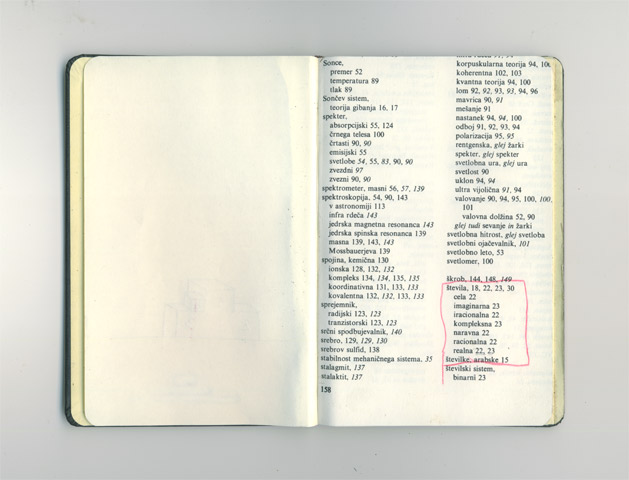 Sonce,
premer 52
temperatura 89
tlak 89
Sončev sistem,
teorija gibanja 16, 17
spekter,
absorpcijski 55, 124
črnega telesa 100
črtasti 90, 90
emisijski 55
svetlobe 54, 55, 83, 90, 90
zvezdni 97
zvezni 90, 90
spektrometer, masni 56, 57, 139
spektroskopija, 54, 90, 143
v astronomiji 113
infra rdeča 143
jedrska magnetna resonanca 143
jedrska spinska resonanca 139
masna 139, 143, 143
Mossbauerjeva 139
spojina, kemična 130
ionska 128, 132, 132
kompleks 134, 134, 135, 135
koordinativna 131, 133, 133
kovalentna 132, 132, 133, 133
sprejemnik,
radijski 123, 123
tranzistorski 123, 123
srčni spodbujevalnik, 140
srebro, 129, 129, 130
srebrov sulfid, 138
stabilnost mehaničnega sistema, 35
stalagmit, 137
stalaktit, 137
158
korpuskularna teorija 94, 100
koherentna 102, 103
kvantna teorija 94, 100
lom 92, 92, 93, 93, 94, 96
mavrica 90, 91
mešanje 91
nastanek 94, 94, 100
odboj 91, 92, 93, 94
polarizacija 95, 95
rentgenska, glej žarki
spekter, glej spekter
svetlobna ura, glej ura
svetlost 90
uklon 94, 94
ultra vijolična 91, 94
valovanje 90, 94, 95, 100, 100,
101
valovna dolžina 52, 90
glej tudi sevanje in žarki
svetlobna hitrost, glej svetloba
svetlobni ojačevalnik, 101
svetlobno leto, 53
svetlomer, 100
škrob, 144, 148, 149
števila, 18, 22, 23, 30
cela 22
imaginarna 23
iracionalna 22
kompleksna 23
naravna 22
racionalna 22
realna 22, 23
številke, arabske 15
številski sistem,
binarni 23